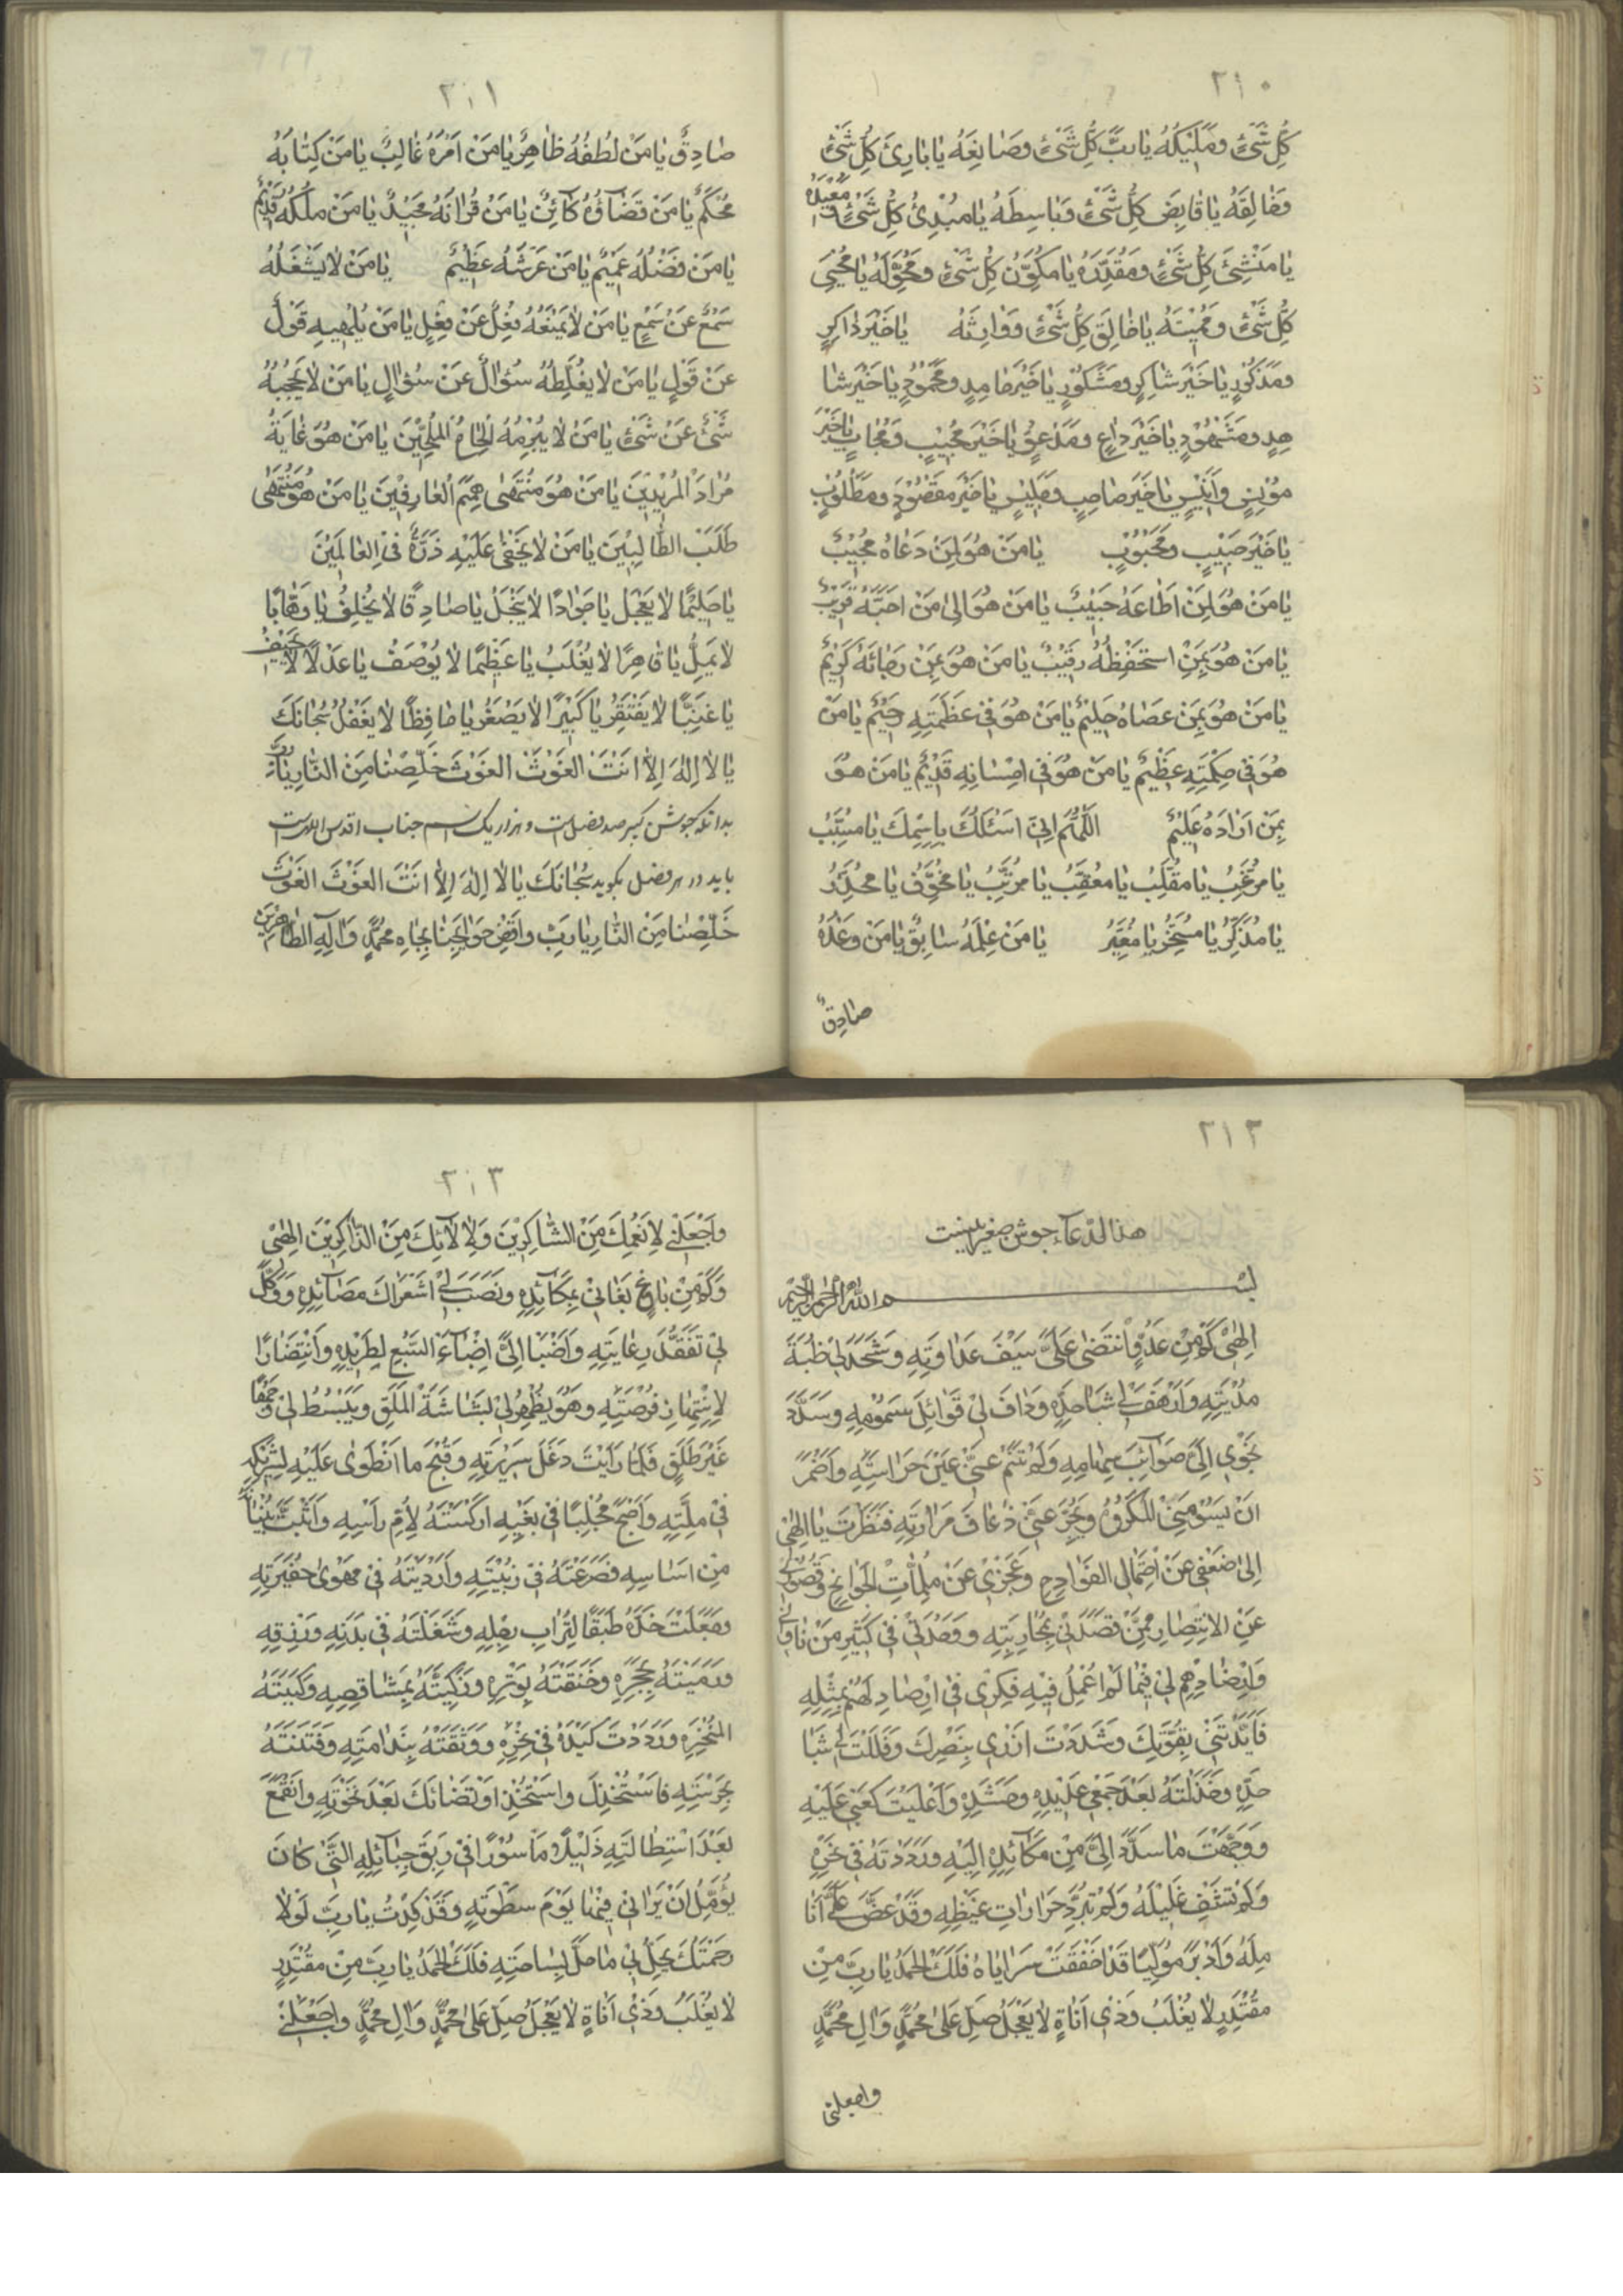 ٢١٠
كُلِّ شَیْءٍ وَمَلِيكَهُ يا رَبَّ كُلِّ شَیْءٍ وَصَانِعَهُ يا بارِئَ كُلِّ شَیْءٍ
وَخالِقَهُ يا قابِضَ كُلِّ شَیْءٍ وَباسِطَهُ يا مُبْدِئَ كُلِّ شَیْءٍ وَمُعِيدَهُ
يا مُنْشِئَ كُلِّ شَیْءٍ وَمُقَدِّرَهُ يا مُكَوِّنَ كُلِّ شَیْءٍ وَمُحَوِّلَهُ يا مُحْيِيَ
كُلِّ شَیْءٍ وَمُمِيتَهُ يا خالِقَ كُلِّ شَیْءٍ وَوارِثَهُ يا خَيْرَ ذاكِرٍ
وَمَذْكُورٍ يا خَيْرَ شاكِرٍ وَمَشْكُورٍ يا خَيْرَ حامِدٍ وَمَحْمُودٍ يا خَيْرَ شا
هِدٍ وَمَشْهُودٍ يا خَيْرَ داعٍ وَمَدْعُوٍّ يا خَيْرَ مُجِيبٍ وَمُجابٍ يا خَيْرَ
مُونِسٍ وَأَنِيسٍ يا خَيْرَ صاحِبٍ وَجَلِيسٍ يا خَيْرَ مَقْصُودٍ وَمَطْلُوبٍ
يا خَيْرَ حَبِيبٍ وَمَحْبُوبٍ يا مَنْ هُوَ لِمَنْ دَعاهُ مُجِيبٌ
يا مَنْ هُوَ لِمَنْ اَطاعَهُ حَبِيبٌ يا مَنْ هُوَ اِلى مَنْ اَحَبَّهُ قَرِيبٌ
يا مَنْ هُوَ بِمَنْ اسْتَحْفَظَهُ رَقِيبٌ يا مَنْ هُوَ بِمَنْ رَجائَهُ كَرِيمٌ
يا مَنْ هُوَ بِمَنْ عَصاهُ حَلِيمٌ يا مَنْ هُوَ فِي عَظَمَتِهِ رَحِيمٌ يا مَنْ
هُوَ فِي حِكْمَتِهِ عَظِيمٌ يا مَنْ هُوَ فِي اِحْسانِهِ قَدِيمٌ يا مَنْ هُوَ
بِمَنْ اَرادَهُ عَلِيمٌ اَللّهُمَّ اِنِّي اَسْئَلُكَ بِاِسْمِكَ يا مُسَبِّبُ
يا مُرَغِّبُ يا مُقَلِّبُ يا مُعَقِّبُ يا مُرَتِّبُ يا مُخَوِّفُ يا مُحَذِّرُ
يا مُذَكِّرُ يا مُسَخِّرُ يا مُغَيِّرُ يا مَنْ عِلْمُهُ سابِقٌ يا مَنْ وَعْدُهُ
صادِقٌ
٢١١
صادِقٌ يا مَنْ لُطْفُهُ ظاهِرٌ يا مَنْ اَمْرُهُ غالِبٌ يا مَنْ كِتابُهُ
مُحْكَمٌ يا مَنْ قَضاؤُهُ كائِنٌ يا مَنْ قُرانُهُ مَجِيدٌ يا مَنْ مُلْكُهُ قَدِيمٌ
يا مَنْ فَضْلُهُ عَمِيمٌ يا مَنْ عَرْشُهُ عَظِيمٌ يا مَنْ لا يَشْغَلُهُ
سَمْعٌ عَنْ سَمْعٍ يا مَنْ لا يَمْنَعُهُ فِعْلٌ عَنْ فِعْلٍ يا مَنْ يُلْهِيهِ قَوْلٌ
عَنْ قَوْلٍ يا مَنْ لا يُغَلِّطُهُ سُؤالٌ عَنْ سُؤالٍ يا مَنْ لا يَحْجُبُهُ
شَیْءٌ عَنْ شَیْءٍ يا مَنْ لا يُبْرِمُهُ اِلْحاحُ الْمُلِحِّينَ يا مَنْ هُوَ غايَةُ
مُرادِ الْمُرِيدِينَ يا مَنْ هُوَ مُنْتَهى هِمَمِ الْعارِفِينَ يا مَنْ هُوَ مُنْتَهى
طَلَبِ الطّالِبِينَ يا مَنْ لا يَخْفى عَلَيْهِ ذَرَّةٌ فِي الْعالَمِينَ
يا حَلِيمًا لا يَعْجَلُ يا جَوادًا لا يَبْخَلُ يا صادِقًا لا يُخْلِفُ يا وَهّابًا
لا يَمَلُّ يا قاهِرًا لا يُغْلَبُ يا عَظِيمًا لا يُوصَفُ يا عَدْلًا لا يَحِيفُ
يا غَنِيًّا لا يَفْتَقِرُ يا كَبِيرًا لا يَصْغُرُ يا حافِظًا لا يَغْفُلُ سُبْحانَكَ
يا لا اِلهَ اِلاّ اَنْتَ الْغَوْثَ الْغَوْثَ خَلِّصْنا مِنَ النّارِ يا رَبِّ
بدانكه جوشن كبير صد فصل است و هزار و يك اسم جناب اقدس اللّه است
بايد در هر فصل بگويد سُبْحانَكَ يا لا اِلهَ اِلاّ اَنْتَ الْغَوْثَ الْغَوْثَ
خَلِّصْنا مِنَ النّارِ يا رَبِّ وَاقْضِ حَوائِجَنا بِجاهِ مُحَمَّدٍ وَآلِهِ الطّاهِرِينَ
٢١٢
هذا الدعاء جوشن صغير اينست
بسم اللّه الرحمن الرحيم
اِلهِي كَمْ مِنْ عَدُوٍّ انْتَضى عَلَيَّ سَيْفَ عَداوَتِهِ وَشَحَذَ لِي ظُبَةَ
مُدْيَتِهِ وَاَرْهَفَ لِي شَبا حَدِّهِ وَدافَ لِي قَواتِلَ سُمُومِهِ وَسَدَّدَ
نَحْوِي اِلَيَّ صَوائِبَ سِهامِهِ وَلَمْ تَنَمْ عَنِّي عَيْنُ حِراسَتِهِ وَاَضْمَرَ
اَنْ يَسُومَنِي الْمَكْرُوهَ وَيُجَرِّعَنِي ذُعافَ مَرارَتِهِ فَنَظَرْتَ يا اِلهِي
اِلى ضَعْفِي عَنِ احْتِمالِ الْفَوادِحِ وَعَجْزِي عَنْ مُلِمّاتِ الْجَوائِحِ وَقُصُورِي
عَنِ الاِنْتِصارِ مِمَّنْ قَصَدَنِي بِمُحارَبَتِهِ وَوَحْدَتِي فِي كَثِيرٍ مِنْ ناوانِي
وَاِرْصادِهِمْ لِي فِيما لَمْ اُعْمِلْ فِيهِ فِكْرِي فِي اِرْصادٍ لَهُمْ بِمِثْلِهِ
فَاَيَّدْتَنِي بِقُوَّتِكَ وَشَدَدْتَ اَزْرِي بِنَصْرِكَ وَفَلَلْتَ لِي شَبا
حَدِّهِ وَخَذَلْتَهُ بَعْدَ جَمْعِ عَدِيدِهِ وَحَشْدِهِ وَاَعْلَيْتَ كَعْبِي عَلَيْهِ
وَوَجَّهْتَ ما سَدَّدَ اِلَيَّ مِنْ مَكائِدِهِ اِلَيْهِ وَرَدَدْتَهُ فِي نَحْرِهِ
وَلَمْ تَشْفِ غَلِيلَهُ وَلَمْ تُبَرِّدْ حَراراتِ غَيْظِهِ وَقَدْ عَضَّ عَلَيَّ اَنا
مِلَهُ وَاَدْبَرَ مُوَلِّيًا قَدْ اَخْفَقَتْ سَراياهُ فَلَكَ الْحَمْدُ يا رَبِّ مِنْ
مُقْتَدِرٍ لا يُغْلَبُ وَذِي اَناةٍ لا يَعْجَلُ صَلِّ عَلى مُحَمَّدٍ وَآلِ مُحَمَّدٍ
واجعلنى
٢١٣
وَاجْعَلْنِي لِاَنْعُمِكَ مِنَ الشّاكِرِينَ وَلِآلائِكَ مِنَ الذّاكِرِينَ اِلهِي
وَكَمْ مِنْ باغٍ بَغانِي بِمَكائِدِهِ وَنَصَبَ لِي اَشْراكَ مَصائِدِهِ وَوَكَّلَ
لِي تَفَقُّدَ رِعايَتِهِ وَاَضْبَأَ اِلَيَّ اِضْباءَ السَّبُعِ لِطَرِيدِهِ وَانْتِضارًا
لِانْتِهازِ فُرْصَتِهِ وَهُوَ يُظْهِرُ لِي بَشاشَةَ الْمَلَقِ وَيَبْسُطُ لِي وَجْهًا
غَيْرَ طَلَقٍ فَلَمّا رَاَيْتَ دَغَلَ سَرِيرَتِهِ وَقُبْحَ ما انْطَوى عَلَيْهِ لِشَرِيكِهِ
فِي مِلَّتِهِ وَاَصْبَحَ مُجْلِبًا فِي بَغْيِهِ اَرْكَسْتَهُ لِاُمِّ رَاْسِهِ وَاَتَيْتَ بُنْيانَهُ
مِنْ اَساسِهِ فَصَرَعْتَهُ فِي زُبْيَتِهِ وَاَرْدَيْتَهُ فِي مَهْوى حَفِيرَتِهِ
وَجَعَلْتَ خَدَّهُ طَبَقًا لِتُرابِ رِجْلِهِ وَشَغَلْتَهُ فِي بَدَنِهِ وَرِزْقِهِ
وَرَمَيْتَهُ بِحَجَرِهِ وَخَنَقْتَهُ بِوَتَرِهِ وَذَكَّيْتَهُ بِمَشاقِصِهِ وَكَبَبْتَهُ
لِمَنْخِرِهِ وَرَدَدْتَ كَيْدَهُ فِي نَحْرِهِ وَوَثَقْتَهُ بِنَدامَتِهِ وَفَتَنْتَهُ
بِحَسْرَتِهِ فَاسْتَخْذَلَ وَاسْتَخْذَا وَتَضائَلَ بَعْدَ نَخْوَتِهِ وَانْقَمَعَ
بَعْدَ اسْتِطالَتِهِ ذَلِيلًا مَأْسُورًا فِي رِبَقِ حَبائِلِهِ الَّتِي كانَ
يُؤَمِّلُ اَنْ يَرانِي فِيها يَوْمَ سَطْوَتِهِ وَقَدْ كِدْتُ يا رَبِّ لَوْلا
رَحْمَتُكَ يَحِلُّ بِي ما حَلَّ بِساحَتِهِ فَلَكَ الْحَمْدُ يا رَبِّ مِنْ مُقْتَدِرٍ
لا يُغْلَبُ وَذِي اَناةٍ لا يَعْجَلُ صَلِّ عَلى مُحَمَّدٍ وَآلِ مُحَمَّدٍ وَاجْعَلْنِي